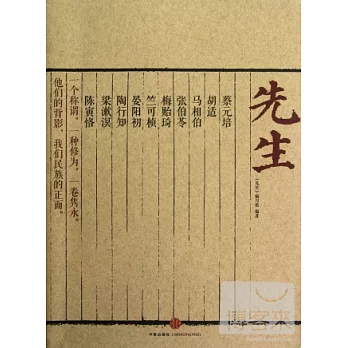 先生
《先生》编写组 编著
蔡元培
胡适
马相伯
张伯苓
梅贻琦
竺可桢
晏阳初
陶行知
梁漱溟
陈寅恪
一个称谓。一种修为。一卷隽永。
他们的背影，我们民族的正面。
中信出版社·CHINACITICPRESS
博客來